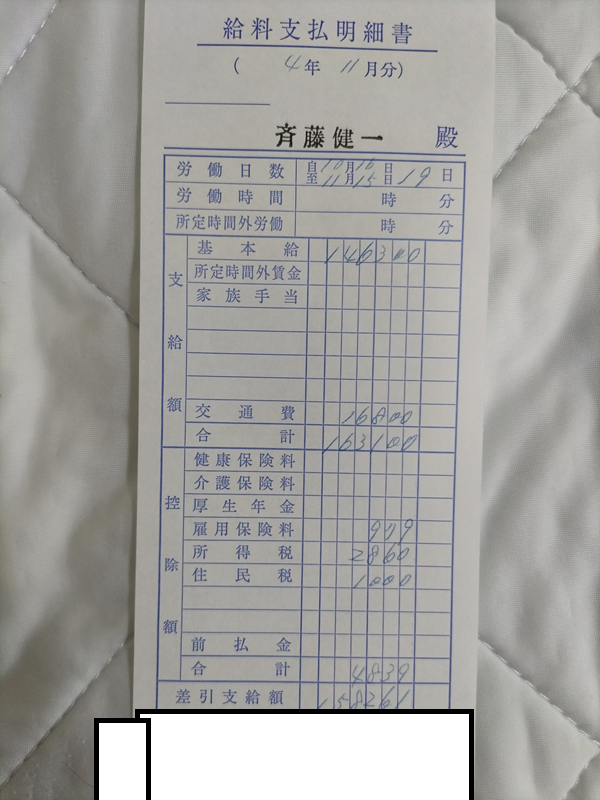 給料支払明細書
( 4年 11月分)
斉藤健一 殿
労働日数 自10月16日 至11月15日 19日
労働時間 時 分
所定時間外労働 時 分
支給額
基本給 146300
所定時間外賃金
家族手当
交通費 16800
合計 163100
控除額
健康保険料
介護保険料
厚生年金
雇用保険料 979
所得税 2860
住民税 1000
前払金
合計 4839
差引支給額 158261